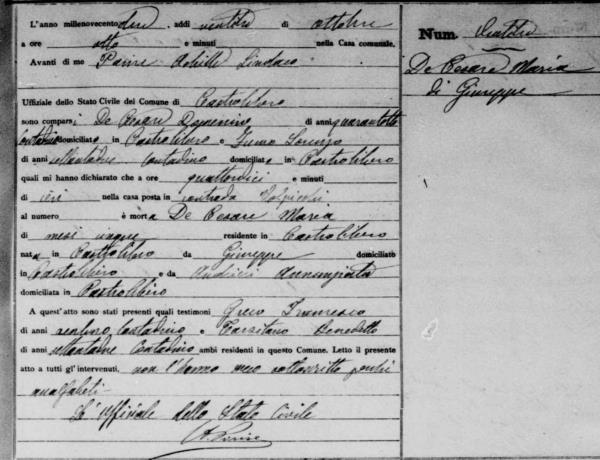 L'anno millenovecento due, addì ventitre di ottobre
a ore otto e minuti nella Casa comunale.
Avanti di me Achille Sindaco
Uffiziale dello Stato Civile del Comune di Castrolibero
sono comparsi De Cesare Domenico di anni quarantotto
contadino domiciliato in Castrolibero e Lorenzo
di anni settantadue contadino domiciliato in Castrolibero
quali mi hanno dichiarato che a ore quattordici e minuti
di ieri nella casa posta in contrada
al numero è morta De Cesare Maria
di mesi cinque residente in Castrolibero
nata in Castrolibero da Giuseppe domiciliato
in Castrolibero e da Annunziata
domiciliata in Castrolibero
A quest'atto sono stati presenti quali testimoni Greco Francesco
di anni contadino e Benedetto
di anni settantadue contadino ambi residenti in questo Comune. Letto il presente
atto a tutti gl'intervenuti, non l'hanno meco sottoscritto perché
analfabeti.
L'Ufficiale dello Stato Civile
Num.
De Cesare Maria
di Giuseppe